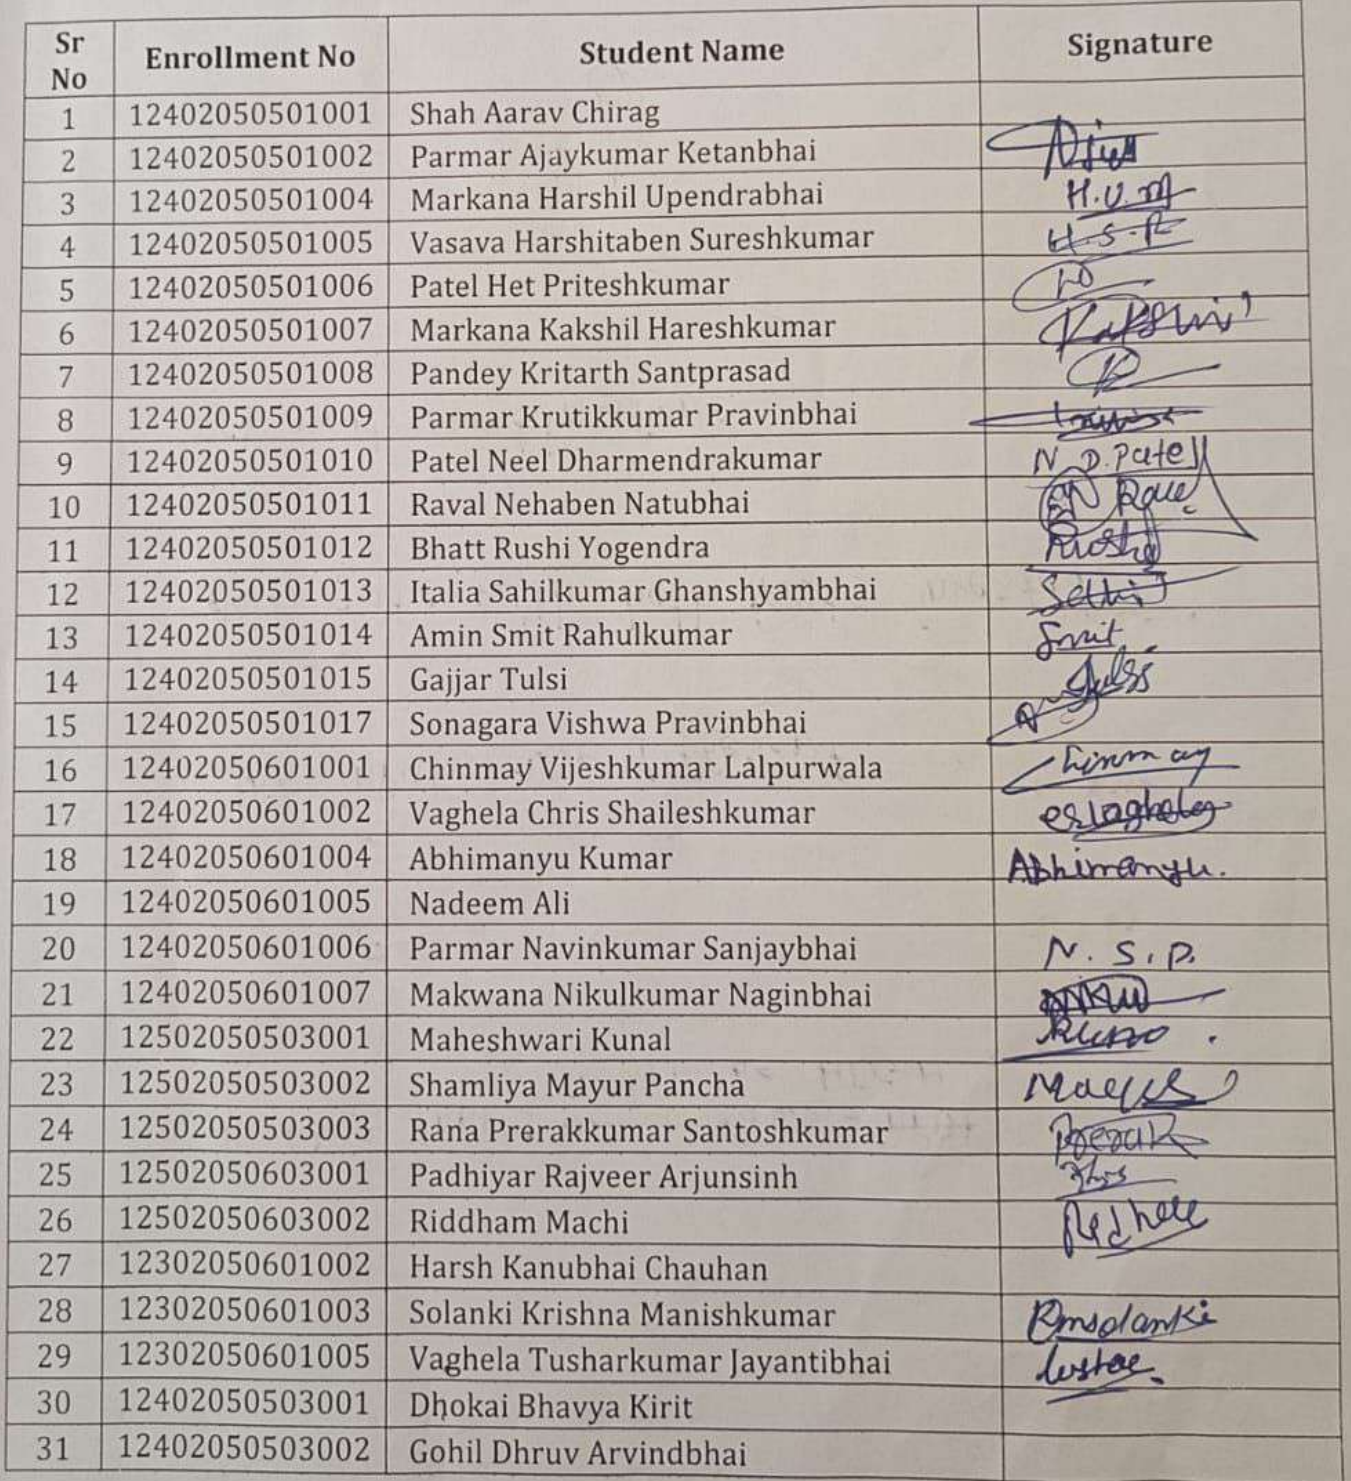 Sr No Enrollment No Student Name Signature
1 12402050501001 Shah Aarav Chirag
2 12402050501002 Parmar Ajaykumar Ketanbhai
3 12402050501004 Markana Harshil Upendrabhai H.U.M
4 12402050501005 Vasava Harshitaben Sureshkumar
5 12402050501006 Patel Het Priteshkumar
6 12402050501007 Markana Kakshil Hareshkumar
7 12402050501008 Pandey Kritarth Santprasad
8 12402050501009 Parmar Krutikkumar Pravinbhai
9 12402050501010 Patel Neel Dharmendrakumar N.D.Patel
10 12402050501011 Raval Nehaben Natubhai
11 12402050501012 Bhatt Rushi Yogendra
12 12402050501013 Italia Sahilkumar Ghanshyambhai
13 12402050501014 Amin Smit Rahulkumar Smit
14 12402050501015 Gajjar Tulsi
15 12402050501017 Sonagara Vishwa Pravinbhai
16 12402050601001 Chinmay Vijeshkumar Lalpurwala Chinmay
17 12402050601002 Vaghela Chris Shaileshkumar
18 12402050601004 Abhimanyu Kumar Abhimanyu.
19 12402050601005 Nadeem Ali
20 12402050601006 Parmar Navinkumar Sanjaybhai N.S.P.
21 12402050601007 Makwana Nikulkumar Naginbhai
22 12502050503001 Maheshwari Kunal
23 12502050503002 Shamliya Mayur Pancha
24 12502050503003 Rana Prerakkumar Santoshkumar Prerak
25 12502050603001 Padhiyar Rajveer Arjunsinh
26 12502050603002 Riddham Machi
27 12302050601002 Harsh Kanubhai Chauhan
28 12302050601003 Solanki Krishna Manishkumar
29 12302050601005 Vaghela Tusharkumar Jayantibhai
30 12402050503001 Dhokai Bhavya Kirit
31 12402050503002 Gohil Dhruv Arvindbhai